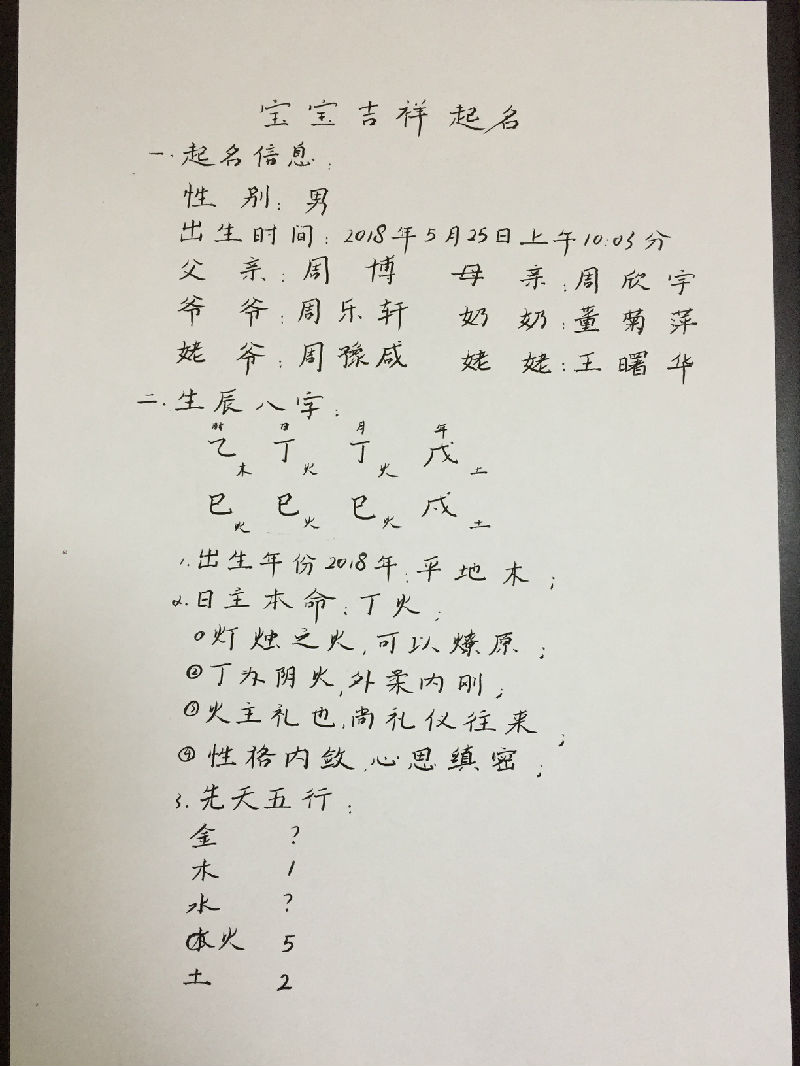 宝宝吉祥起名
一.起名信息:
性别:男
出生时间:2018年5月25日上午10:03分
父亲:周博 母亲:周欣宇
爷爷:周乐轩 奶奶:董菊萍
姥爷:周豫咸 姥姥:王曙华
二.生辰八字:
时 日 月 年
乙木 丁火 丁火 戊土
巳火 巳火 巳火 戌土
1.出生年份2018年:平地木;
2.日主本命:丁火;
①灯烛之火,可以燎原;
②丁为阴火,外柔内刚;
③火主礼也,尚礼仪往来;
④性格内敛,心思缜密;
3.先天五行:
金 ?
木 1
水 ?
(本)火 5
土 2